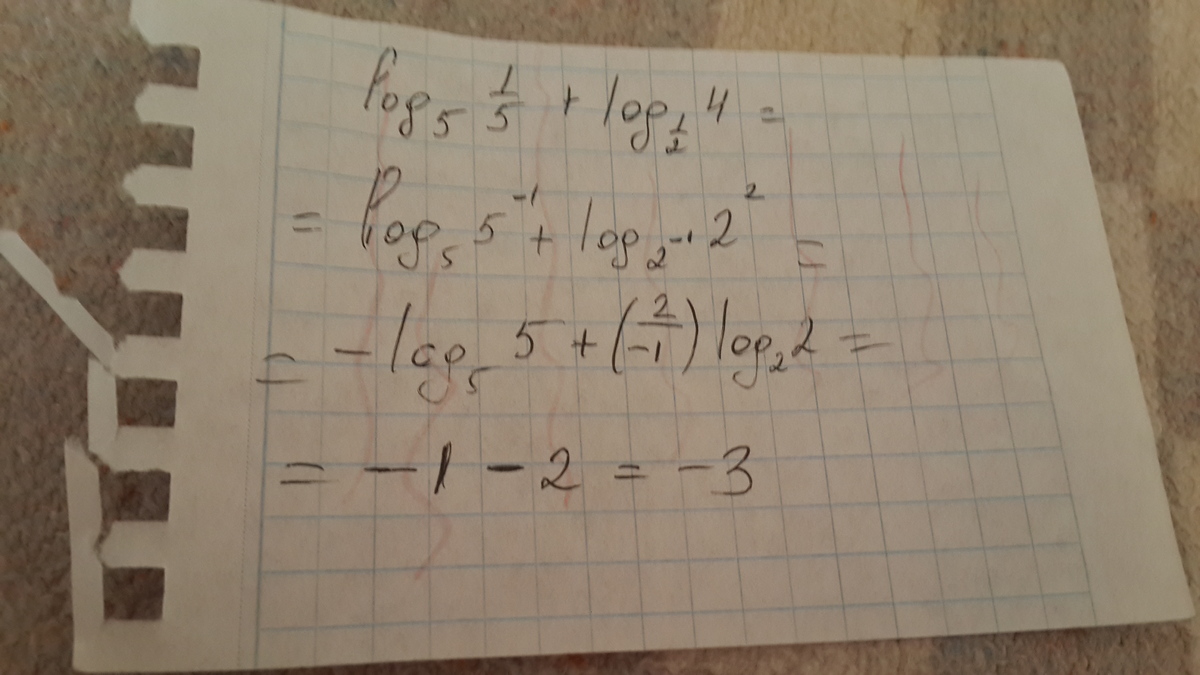 log₅ 1/5 + log_{1/2} 4 =
= log₅ 5⁻¹ + log_{2⁻¹} 2² =
= - log₅ 5 + (2/-1) log₂ 2 =
= - 1 - 2 = - 3